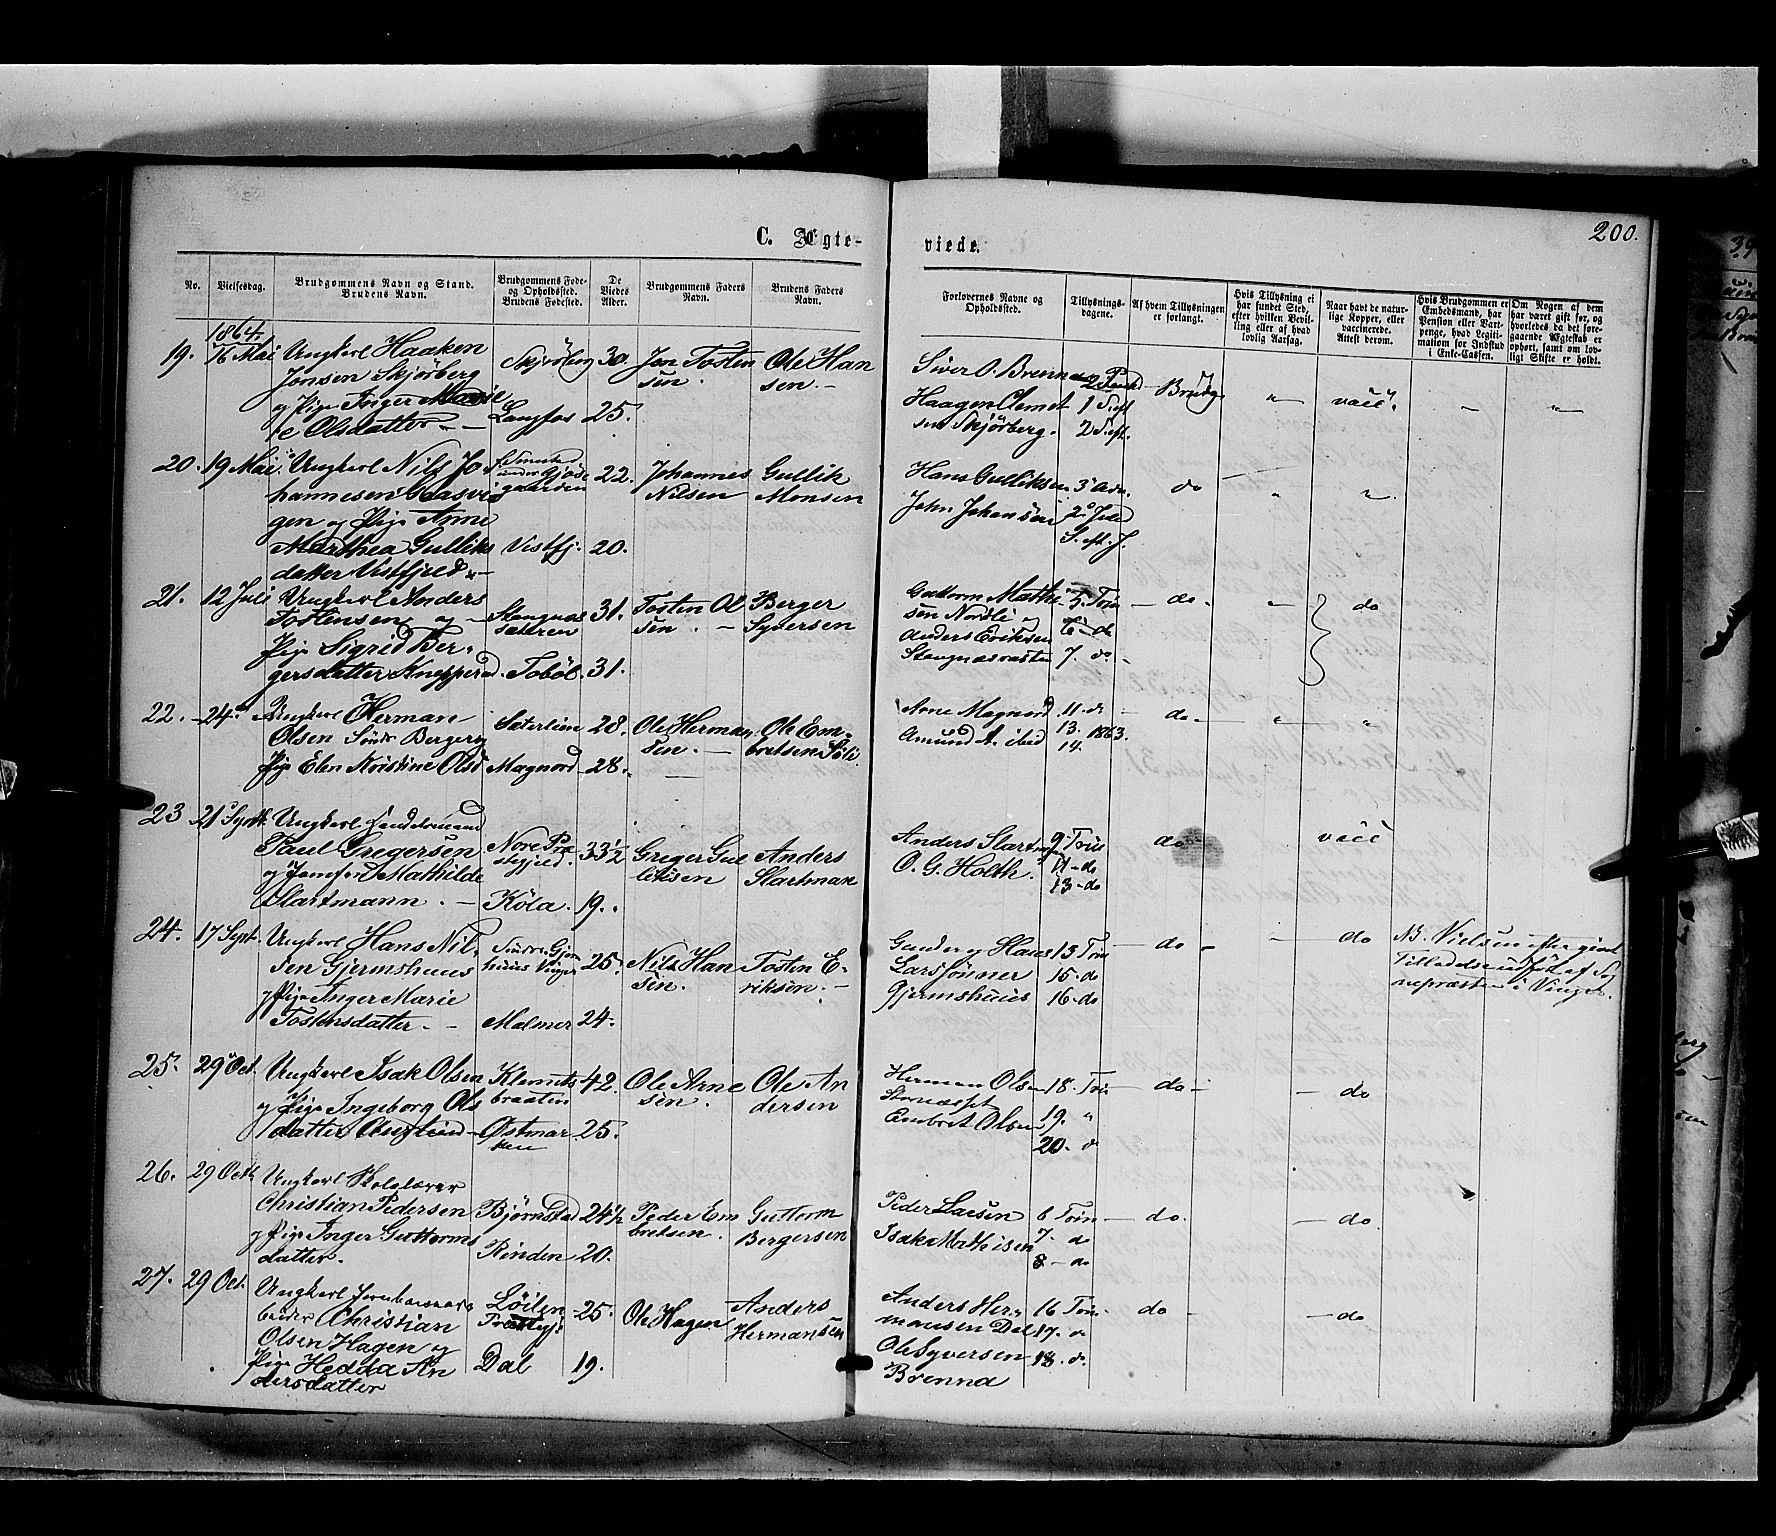 C. Ægte-
viede.
200.
No.
Vielsesdag.
Brudgommens Navn og Stand.
Brudens Navn.
Brudgommens Føde-
og Opholdsted.
Brudens Fødested.
De
Viedes
Alder.
Brudgommens Faders
Navn.
Brudens Faders
Navn.
Forlovernes Navne og
Opholdsted.
Tillysnings-
dagene.
Af hvem Tillysningen
er forlangt.
Hvis Tillysning ei
har fundet Sted,
efter hvilken Bevil-
ling eller af hvad
lovlig Aarsag.
Naar havt de natur-
lige Kopper, eller
vaccinerede.
Attest derom.
Hvis Brudgommen er
Embedsmand, har
Pension eller Vart-
penge, hvad Legiti-
mation for Indskud
i Enke-Cassen.
Om Nogen af dem
har været gift før, og
hvorledes da det fore-
gaaende Ægteskab er
ophørt, samt om lov-
ligt Skifte er holdt.
1864.
19. 16 Mai Ungkarl Haaken
Jonsen Skjørberg
og Pige Inger Marie
Olsdatter
Skjørberg 30.
Langfos 25.
Jon Tosten
sen.
Ole Han
sen.
Siver O. Brenna
Haagen Clemet
sen Skjørberg.
1 S. eft.
2 S. eft.
Brudg. " vacc. " "
20. 19 Mai Ungkarl Nils Jo
hannesen Gaasvig
gen og Pige Anne
Marthea Gulliks
datter Vestfjeld
under
gaarden 22.
Vestfj. 20.
Johannes
Nilsen
Gullik
Monsen
Hans Gulliksen 3 Adv.
John Johansen 2 Juled
S. eft. J.
do " "
21. 12 Juli Ungkarl Anders
Tostensen og
Pige Sigrid Ber-
gersdatter Knapperud
Stangnæs
sæteren 31.
Tobøl. 31.
Tosten Ol
sen.
Berger
Syversen
Guttorm Mathi
sen Nordli og
Anders Eriksen
Stangnæs
5. Trin
6 - do
7. do
do - " do
22. 24 Ungkarl Herman
Olsen Søndr Berger og
Pige Elen Kristine Olsd
Sæterlien 28.
Magnord 28.
Ole Herman
sen.
Ole Em-
bretsen Sôli
Arne Magnord
Amund A. ibid
11. do
13.
14. 1863.
do - " "
23 21 Septb. Ungkarl Handelsmand
Paul Gregersen
og Jomfru Mathilde
Slartmann.
Nore Præ
stegjeld. 33½
Köla. 19.
Greger Gul
leksen
Anders
Slartman
Anders Slartman
O. G. Holth.
9. Trin
11 - do
13 - do
do vacc
24. 17 Sept. Ungkarl Hans Nil-
sen Gjermshuus
og Pige Inger Marie
Tostensdatter.
Søndre Gjerms
huus Vinger 25.
Malmer 24.
Nils Han
sen.
Tosten E-
riksen.
Gunder og Hans
Larssønner
Gjermshuus
13 Trin
15. do
16. do
do - do
NB. Nielsen efter given
Tilladelse af So
nepræsten i Vinger.
25. 29 Oct. Ungkarl Isak Olsen
og Pige Ingeborg Ols
datter
Klemets
braaten 42.
Østmar
ken 25.
Ole Arne
sen.
Ole An
dersen
Herman Olsen
Embret Olsen
18. Trin
19. "
20. do
do - do
26. 29 Octb Ungkarl Skolelærer
Christian Pedersen
og Pige Inger Guttorms
datter.
Bjørnstad 24½
Rinden 20.
Peder Em
bretsen.
Guttorm
Bergersen
Peder Larsen
Isak Mathisen
6 Trin
7. do
8 - do
do. - do
27. 29 Oct. Ungkarl
Christian
Olsen Hagen og
Pige Hedda An
dersdatter
Löiten
Præstegj. 25.
Dal 19.
Ole Hagen
Anders
Hermansen
Anders Her-
mansen Dal
Ole Syversen
Brenna
16 Trin
17. do
18. do.
do - do